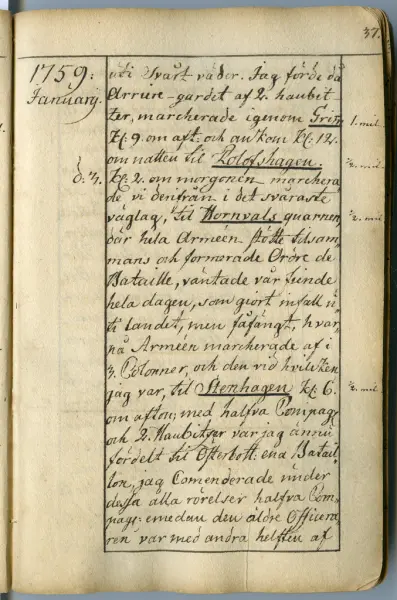 37.
1759: uti svårt väder. Jag förde då
January. Arriere-gardet af 2. haubit-
ter, marcherade igenom Grim 1. mil.
Kl. 9. om aft: och ankom Kl: 12.
om natten til Rolofshagen. ½. mil.
d. 3. Kl: 2. om morgonen marchera-
de vi derifrån i det svåraste
väglag, til Hornvals quarnen, ½. mil
där hela Arméen stötte tilsam-
mans och formerade Ordre de
Bataille, väntade vår fiende
hela dagen, som giort infall u-
ti landet, men fåfängt, hvar-
på Arméen marcherade af i
3. Colonner, och den vid hvilken
jag var, til Stenhagen Kl: 6. ½. mil.
om afton; med halfva Compag:
och 2. Haubitzer var jag ännu
fördelt til Österbott: ena Batail-
lon, jag Comenderade under
dessa alla rörelser halfva Com-
pag: emedan den äldre Officera-
ren var med andra helften af